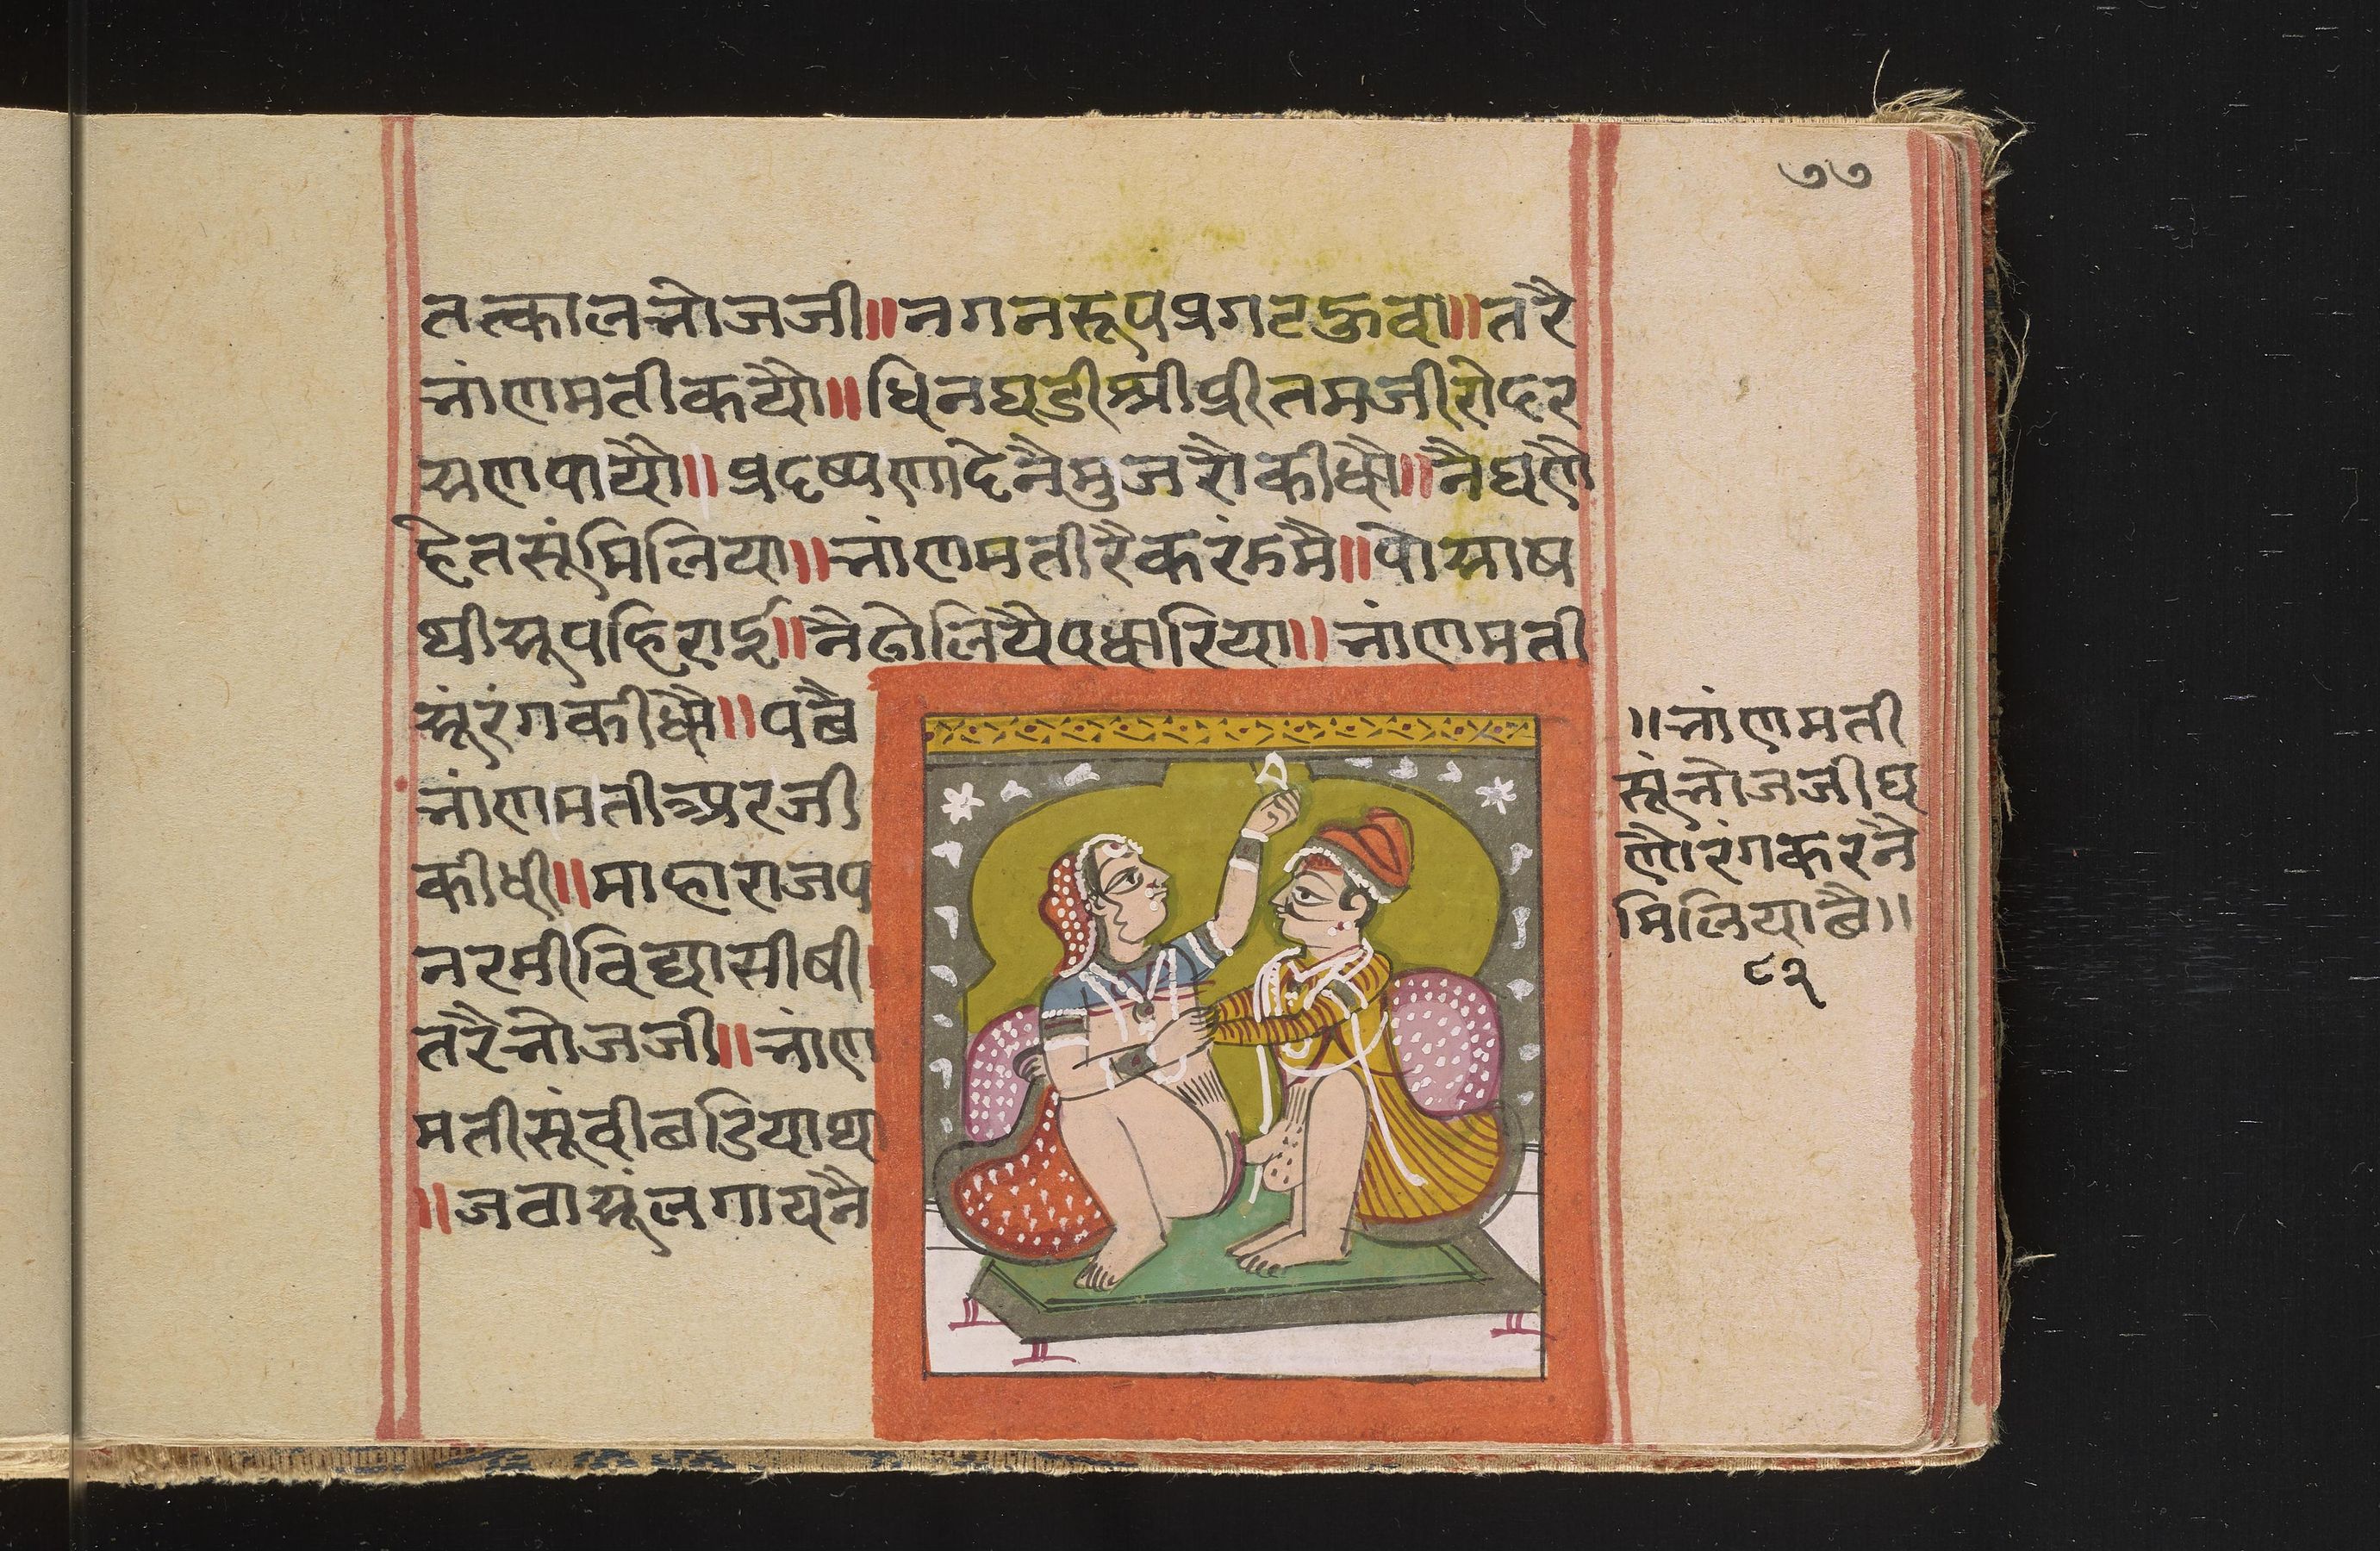 ७७
तत्कालभोजजी॥नगनरूपप्रगटहुवा॥तरै
भांणमतीकयौ॥धिनघडीश्रीप्रीतमजीरोदर
सणपायौ॥प्रदष्पणादेनैमुजरौकीधौ॥नैघणै
हेतसूंमिलिया॥भांणमतीरैकरंडमै॥पोसाष
थीसूपहिराई॥नैढोलियैपधारिया॥भांणमती
सूंरंगकीधौ॥पछै
भांणमतीअरजी
कीधी॥माहाराजप
नरमीविद्यासीषी
तरैभोजजी॥भांण
मतीसूंवीछडियाथा
॥जवासूंलगायनै
॥भांणमती
सूंभोजजीघ
णौरंगकरनै
मिलियाछै॥
८२